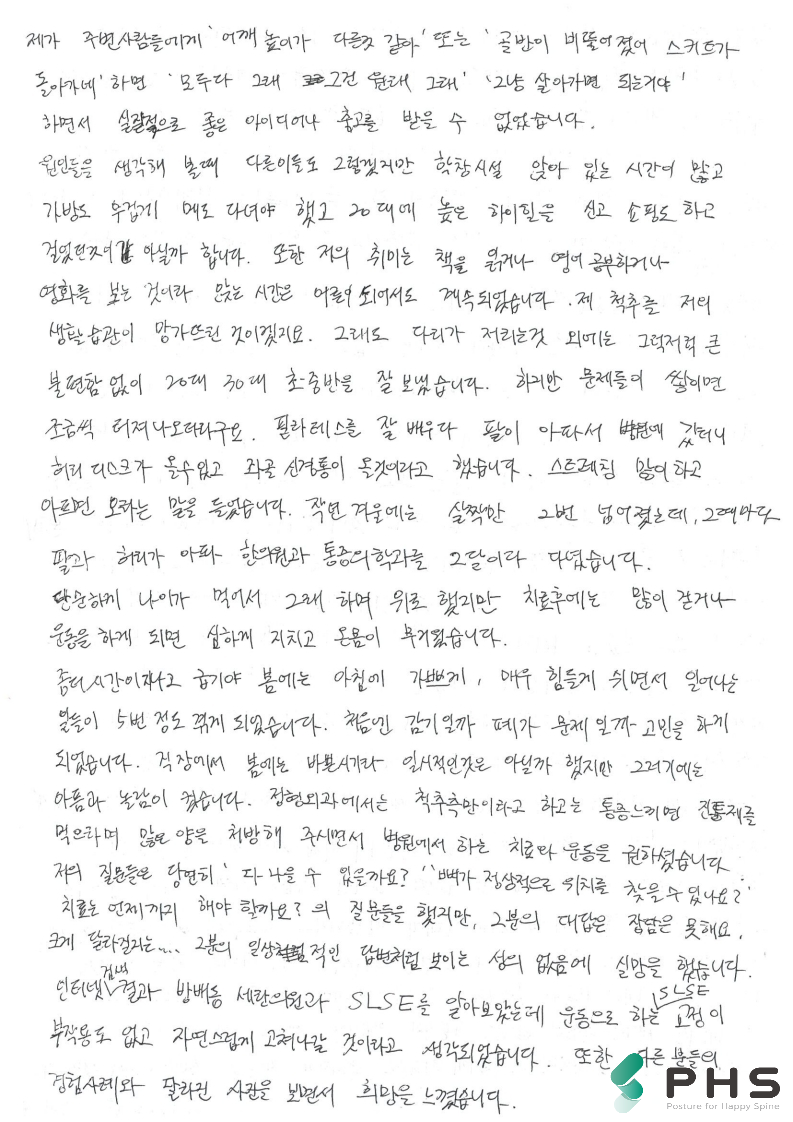 제가 주변사람들에게 '어깨 높이가 다른것 같아' 또는 '골반이 비뚤어졌어 스커트가
돌아가네' 하면 '모두다 그래 그건 원래 그래' '그냥 살아가면 되는거야'
하면서 실질적으로 좋은 아이디어나 충고를 받을 수 없었습니다.
원인들을 생각해 볼때 다른이들도 그렇겠지만 학창시설 앉아 있는 시간이 많고
가방도 무겁게 메도 다녀야 했고 20대에 높은 하이힐을 신고 쇼핑도 하고
걸었던것이 아닐까 합니다. 또한 저의 취미는 책을 읽거나 영어 공부하거나
영화를 보는 것이라 앉는 시간은 어른이 되어서도 계속되었습니다. 제 척추를 저의
생활습관이 망가뜨린 것이겠지요. 그래도 다리가 저리는것 외에는 그럭저럭 큰
불편함 없이 20대 30대 초·중반을 잘 보냈습니다. 하지만 문제들이 쌓이면
조금씩 터져나오더라구요. 필라테스를 잘 배우다 팔이 아파서 병원에 갔더니
허리 디스크가 올수있고 좌골 신경통이 올것이라고 했습니다. 스트레칭 많이하고
아프면 오라는 말을 들었습니다. 작년 겨울에는 살짝만 2번 넘어졌는데, 그때마다
팔과 허리가 아파 한의원과 통증의학과를 2달이다 다녔습니다.
단순하게 나이가 먹어서 그래 하며 위로 했지만 치료후에는 많이 걷거나
운동을 하게 되면 심하게 지치고 온몸이 무거웠습니다.
좀더시간이 지나고 급기야 봄에는 아침에 가쁘게, 매우 힘들게 쉬면서 일어나는
일들이 5번 정도 겪게 되었습니다. 처음엔 감기일까 폐가 문제일까 고민을 하게
되었습니다. 직장에서 봄에는 바쁜시기라 일시적인것은 아닐까 했지만 그러기에는
아픔과 놀람이 컸습니다. 정형외과에서는 척추측만이라고 하고는 통증느끼면 진통제를
먹으라며 많은 양을 처방해 주시면서 병원에서 하는 치료와 운동을 권하셨습니다.
저의 질문들은 당연히 '다 나을 수 있을까요?' '뼈가 정상적으로 위치를 찾을 수 있나요?'
치료는 언제까지 해야 할까요? 의 질문들을 했지만, 그분의 대답은 장담은 못해요,
크게 달라질지는.... 그분의 일상적인 답변처럼 보이는 성의 없음에 실망을 했습니다.
인터넷 검색 결과 방배동 세란의원과 SLSE를 알아보았는데 운동으로 하는 SLSE 교정이
부작용도 없고 자연스럽게 고쳐나갈 것이라고 생각되었습니다. 또한 다른 분들의
경험사례와 달라진 사진을 보면서 희망을 느꼈습니다.
PHS
Posture for Happy Spine